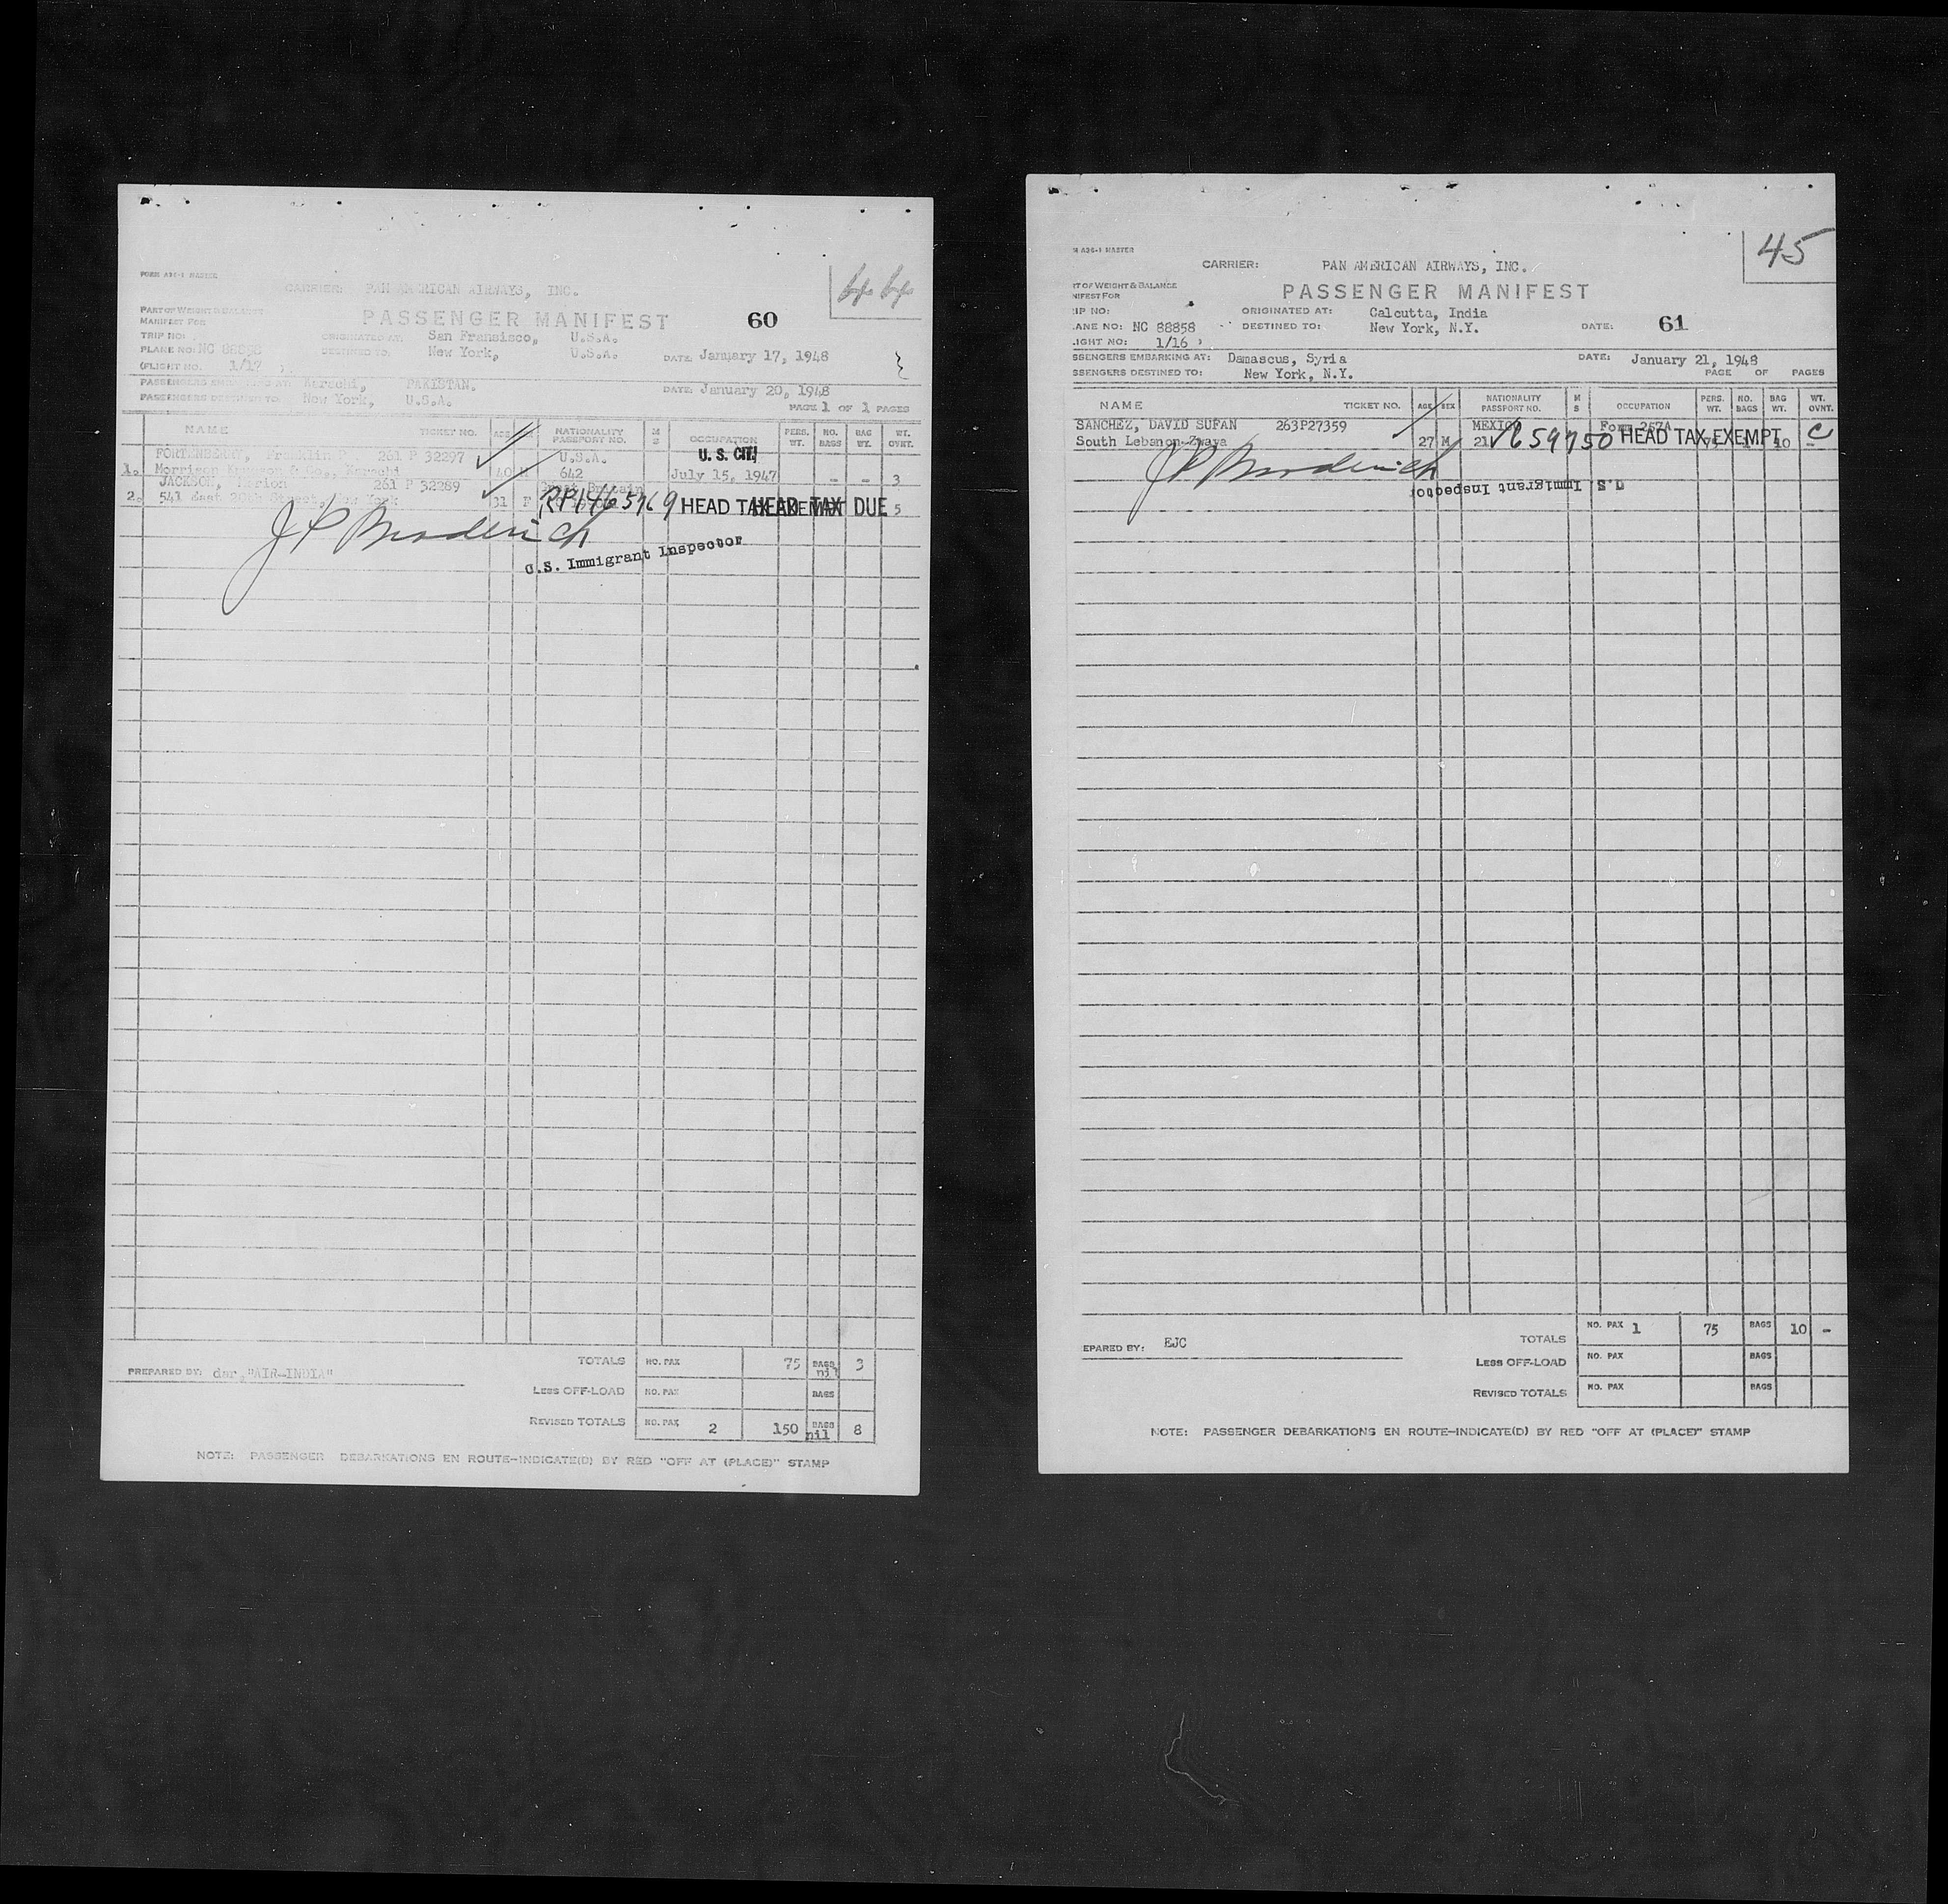 FORM A36-1 MASTER
CARRIER: PAN AMERICAN AIRWAYS, INC.
PART OF WEIGHT & BALANCE
MANIFEST FOR
PASSENGER MANIFEST
60
TRIP NO:
ORIGINATED AT: San Fransisco, U.S.A.
PLANE NO: NC 88858
DESTINED TO: New York, U.S.A.
DATE: January 17, 1948
(FLIGHT NO. 1/17 )
PASSENGERS EMBARKING AT: Karachi, PAKISTAN.
DATE: January 20, 1948
PASSENGERS DESTINED TO: New York, U.S.A.
PAGE 1 OF 1 PAGES
NAME TICKET NO. AGE NATIONALITY PASSPORT NO. M S OCCUPATION PERS. WT. NO. BAGS BAG WT. WT. OVNT.
FORTENBERRY, Franklin 261 P 32297 U.S.A. U. S. CIT.
1. Morrison Knudson & Co., Karachi 40 M 642 July 15, 1947 - - 3
JACKSON, Marion 261 P 32289 Great Britain
2. 541 East 20th Street, New York 31 F RP1465769 HEAD TAX HEAD TAX DUE 5
J P Broderich
U.S. Immigrant Inspector
TOTALS NO. PAX 75 BAGS nil 3
PREPARED BY: dar, "AIR-INDIA"
LESS OFF-LOAD NO. PAX BAGS
REVISED TOTALS NO. PAX 2 150 BAGS nil 8
NOTE: PASSENGER DEBARKATIONS EN ROUTE-INDICATE(D) BY RED "OFF AT (PLACE)" STAMP
45
M A36-1 MASTER
CARRIER: PAN AMERICAN AIRWAYS, INC.
RT OF WEIGHT & BALANCE
NIFEST FOR
PASSENGER MANIFEST
IP NO:
ORIGINATED AT: Calcutta, India
ANE NO: NC 88858
DESTINED TO: New York, N.Y.
DATE: 61
LIGHT NO: 1/16 )
SSENGERS EMBARKING AT: Damascus, Syria
DATE: January 21, 1948
SSENGERS DESTINED TO: New York, N.Y.
PAGE OF PAGES
NAME TICKET NO. AGE SEX NATIONALITY PASSPORT NO. M S OCCUPATION PERS. WT. NO. BAGS BAG WT. WT. OVNT.
SANCHEZ, DAVID SUFAN 263P27359 MEXICO Form 257A
South Lebanon-Zwaya 27 M 21 V659750 HEAD TAX EXEMPT 75 1 10 - C
J P Broderich
U.S. Immigrant Inspector
TOTALS NO. PAX 1 75 BAGS 10 -
EPARED BY: EJC
LESS OFF-LOAD NO. PAX BAGS
REVISED TOTALS NO. PAX BAGS
NOTE: PASSENGER DEBARKATIONS EN ROUTE-INDICATE(D) BY RED "OFF AT (PLACE)" STAMP